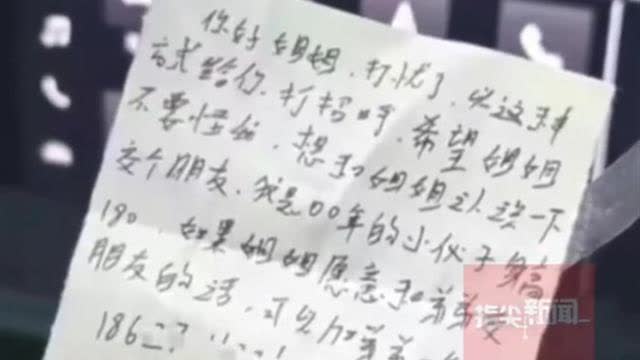 你好姐姐,打扰了,以这种
方式给你打招呼,希望姐姐
不要怪我,想和姐姐认识一下
交个朋友,我是00年的小伙子身高
180,如果姐姐愿意和弟弟交
朋友的话,可以加弟弟
186
指尖新闻